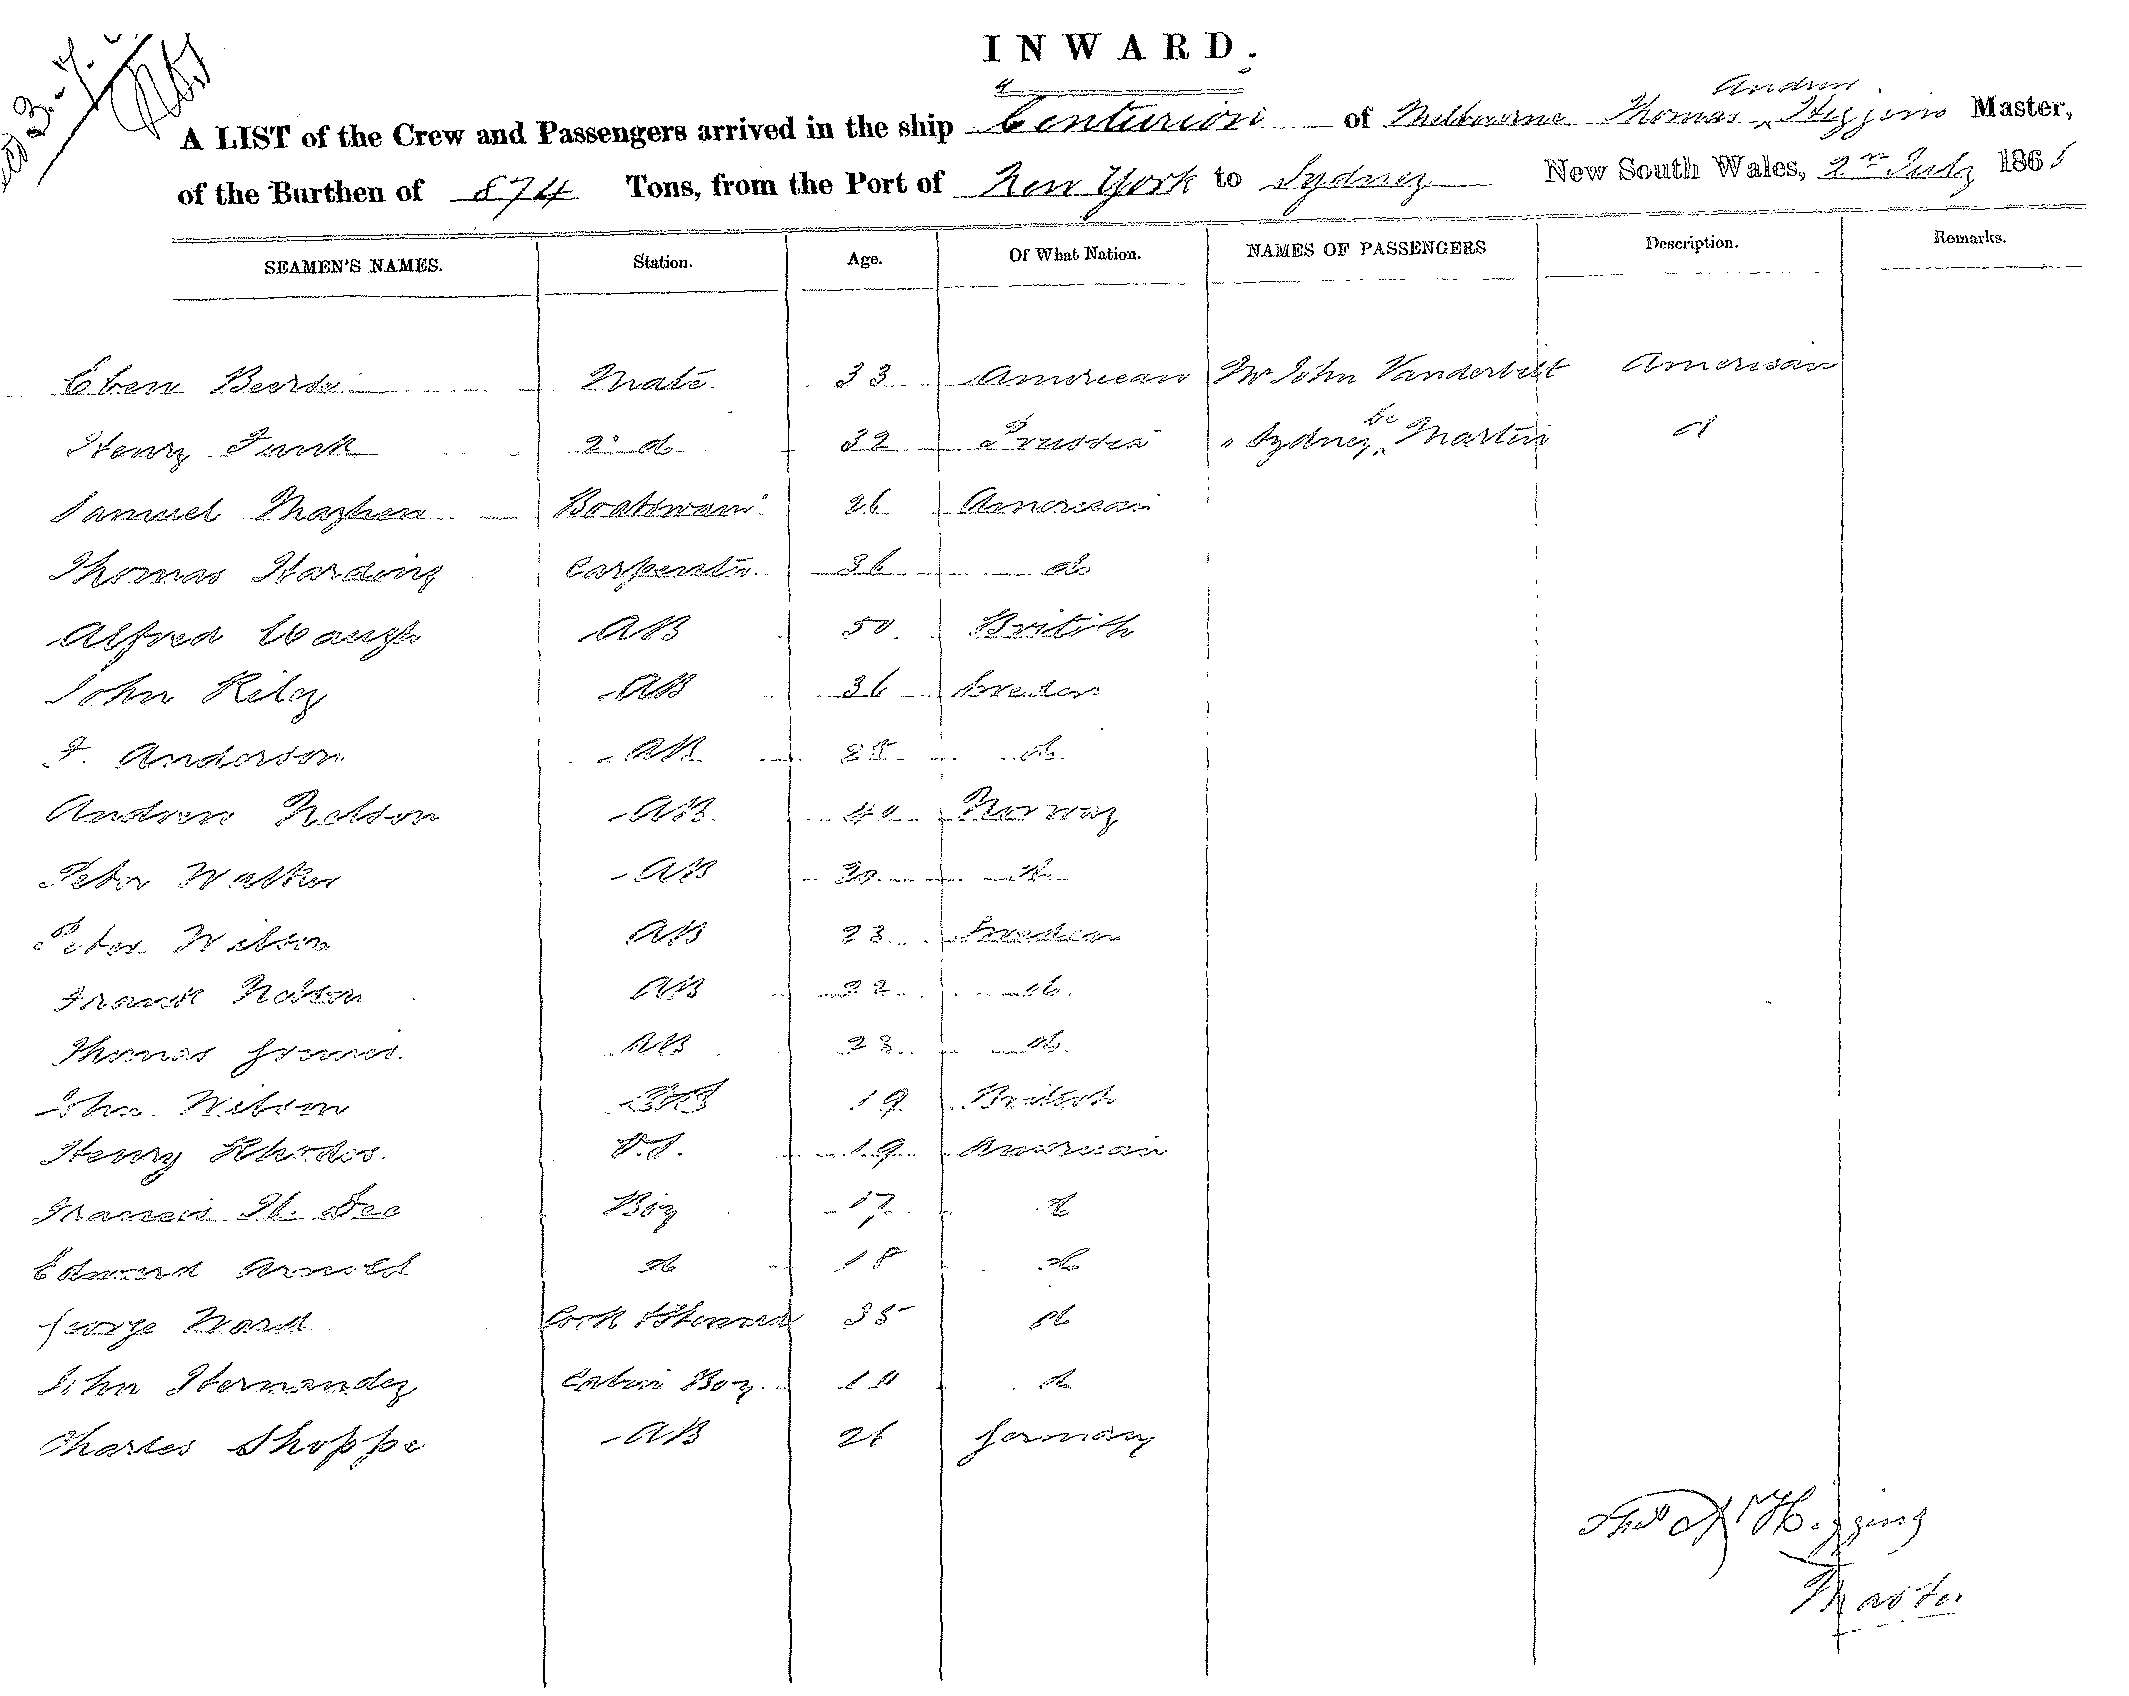 INWARD.
A LIST of the Crew and Passengers arrived in the ship "Centurion of Melbourne Thomas Andrew Higgins Master,
of the Burthen of 874 Tons, from the Port of New York to Sydney New South Wales, 2nd July 186
SEAMEN'S NAMES. Station. Age. Of What Nation. NAMES OF PASSENGERS Description. Remarks.
Eben Mate 33 American Mr John Vanderbilt American
Henry Funk 2d do 32 Prussia " Sydney Martin do
Samuel Boatswain 26 American
Thomas Harding Carpenter 36 do
Alfred Waugh AB 50 British
John Riley AB 36 Sweden
F. Anderson AB 25 do
Andrew Nelson AB 40 Norway
Peter Walker AB 30 do
Peter Wilson AB 23 Sweden
Frank Nelson AB 22 do
Thomas AB 23 do
John Wilson 19 British
Henry Rhodes O.S. 19 American
Francis H. Boy 17 do
Edward Arnold do 18 do
George Ward Cook & Steward 35 do
John Hernandez Cabin Boy do
Charles Shoppe AB 26 Germany
Thos A Higgins
Master